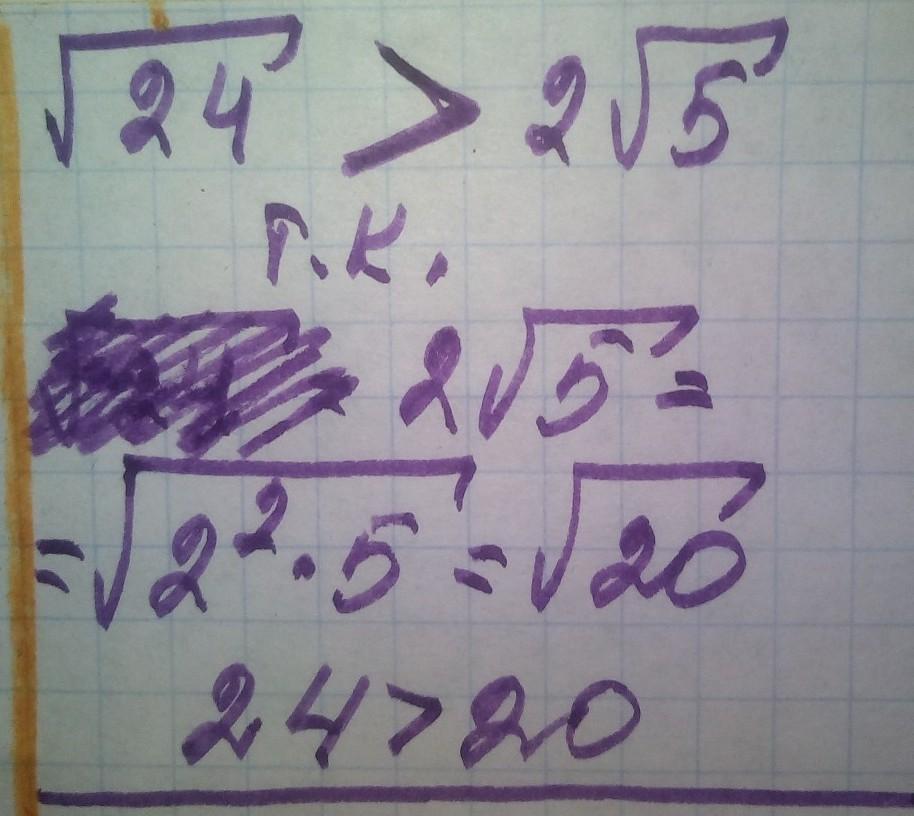 √24 > 2√5
т.к.
2√5 =
= √2² · 5 = √20
24 > 20